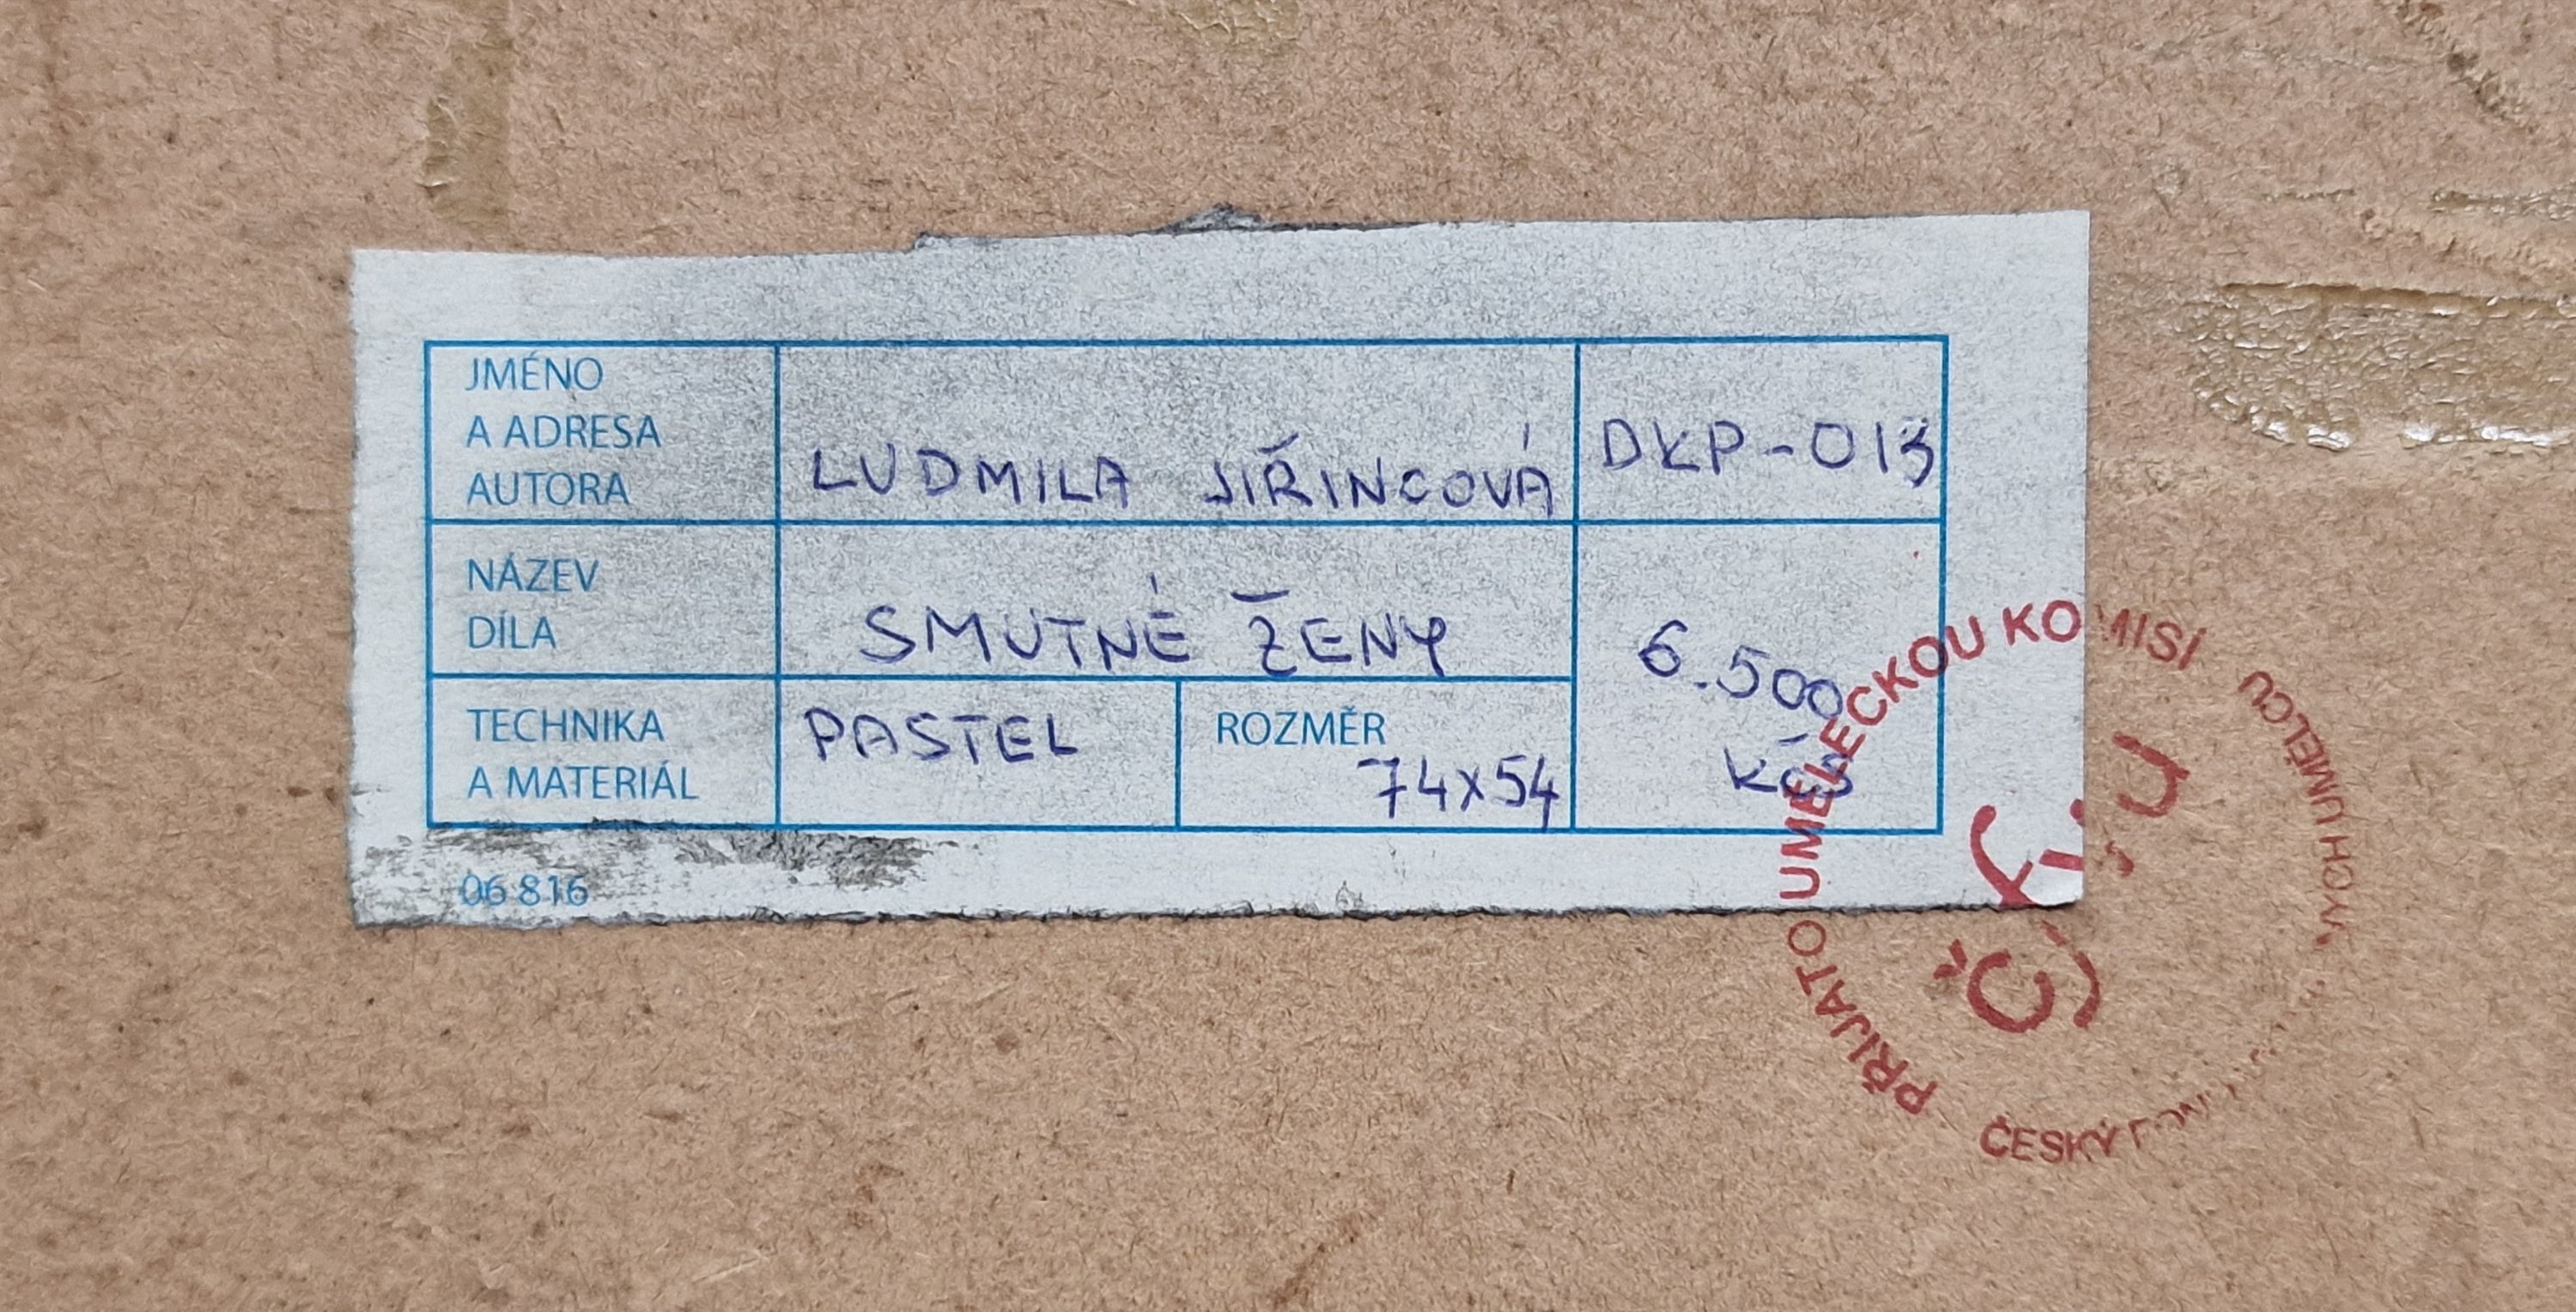 JMÉNO
A ADRESA
AUTORA
LUDMILA JIŘINCOVÁ
DKP-013
NÁZEV
DÍLA
SMUTNÉ ŽENY
6.500
Kčs
TECHNIKA
A MATERIÁL
PASTEL
ROZMĚR
74x54
06 816
PŘIJATO UMĚLECKOU KOMISÍ
ČESKÝ
VÝCH UMĚLCŮ